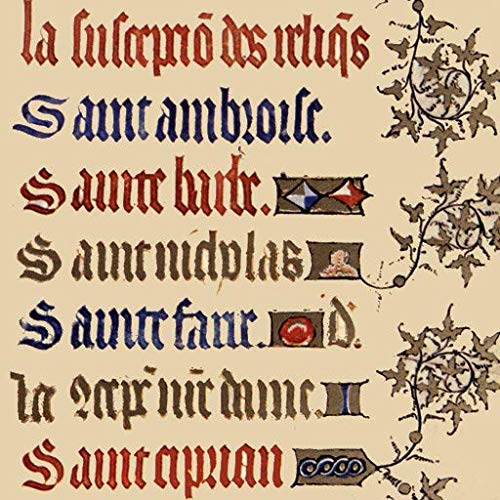 la suscepciõ des reliq̃s
Saint ambroise.
Sainte barbe.
Saint nicholas
Sainte fare. d.
la ꝯcepc̃ nr̃e dame.
Saint ciprian